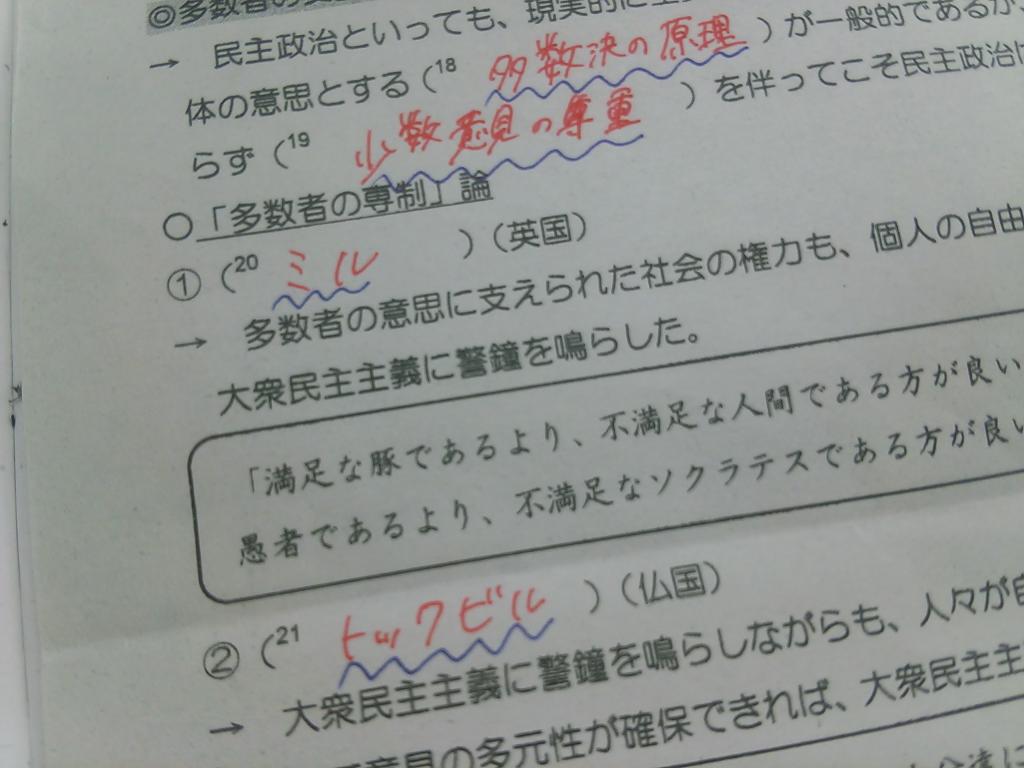 ◎多数者の
→ 民主政治といっても、現実的に
体の意思とする（18 多数決の原理 ）が一般的であるが、
らず（19 少数意見の尊重 ）を伴ってこそ民主政治
○「多数者の専制」論
①（20 ミル ）（英国）
→ 多数者の意思に支えられた社会の権力も、個人の自由
大衆民主主義に警鐘を鳴らした。
「満足な豚であるより、不満足な人間である方が良い
愚者であるより、不満足なソクラテスである方が良い
②（21 トックビル ）（仏国）
→ 大衆民主主義に警鐘を鳴らしながらも、人々が自
意見の多元性が確保できれば、大衆民主主